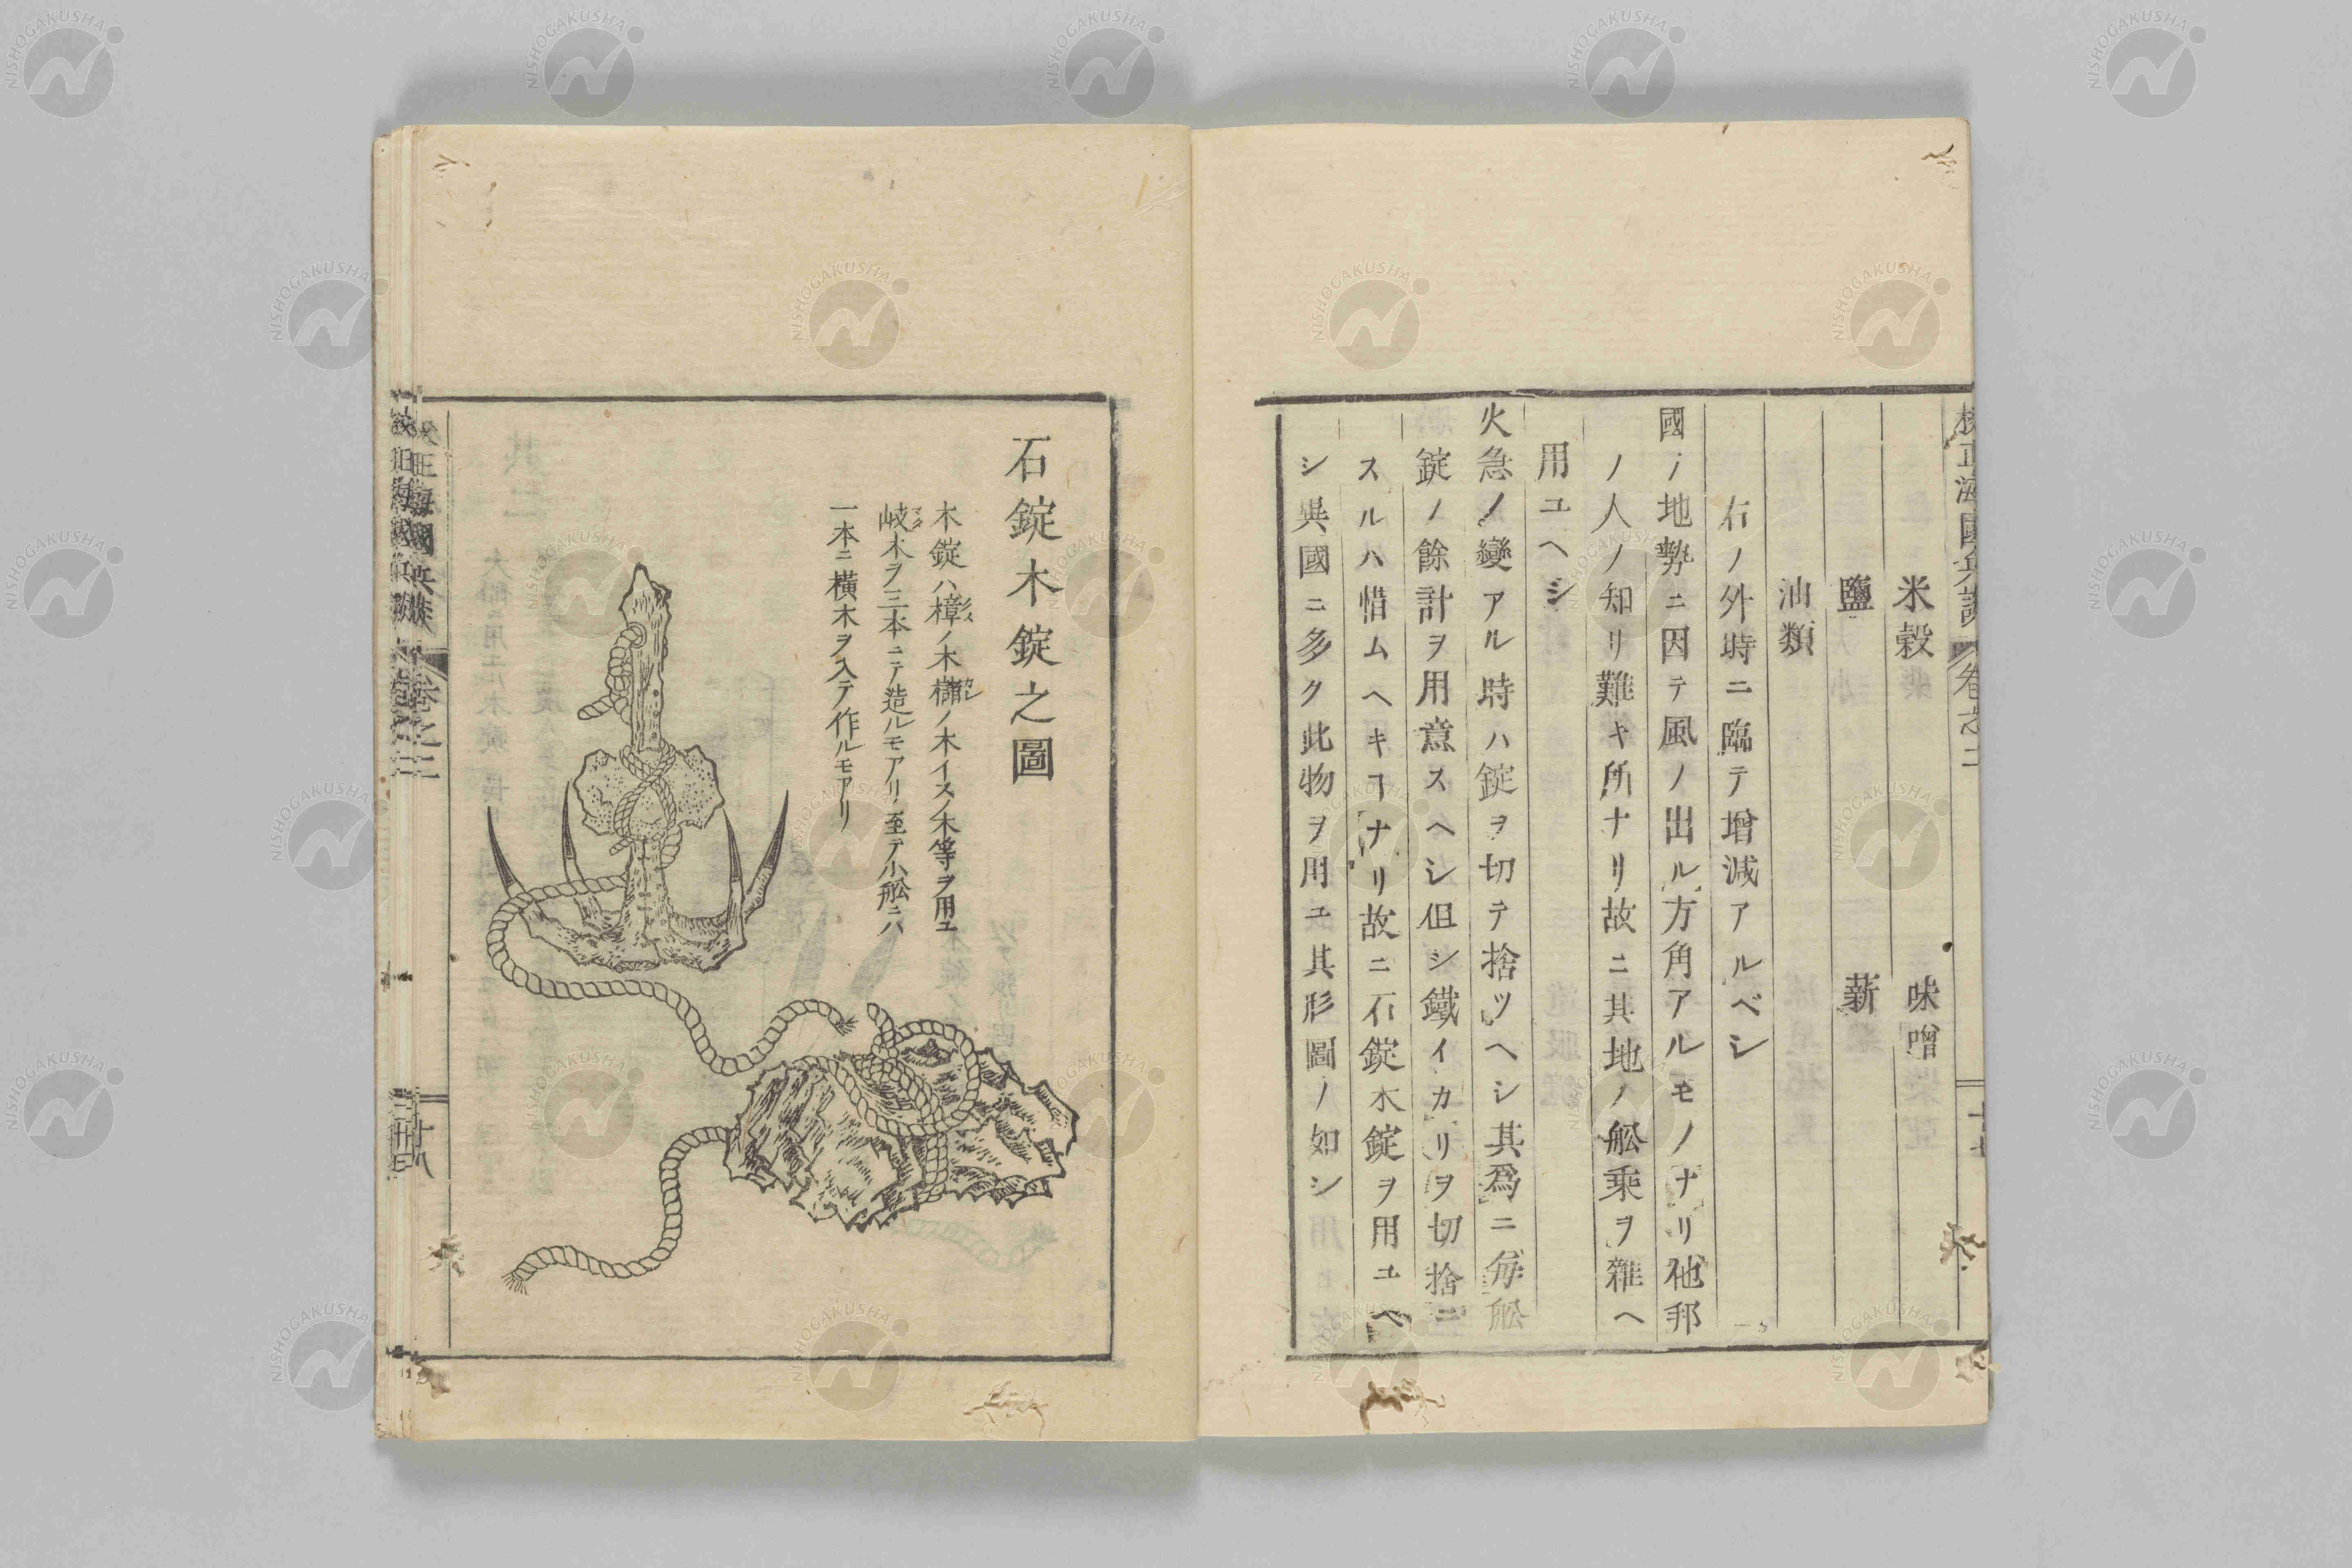 校正海國兵談 卷之二 十七
米穀 味噌
鹽 薪
油類
右ノ外時ニ臨テ増減アルベシ
國ノ地勢ニ因テ風ノ出ル方角アルモノナリ他邦
ノ人ノ知リ難キ所ナリ故ニ其地ノ舩乘ヲ雜ヘ
用ユヘシ
火急ノ變アル時ハ錠ヲ切テ捨ツヘシ其爲ニ毎舩
錠ノ餘計ヲ用意スヘシ但シ鐵イカリヲ切捨ニ
スルハ惜ムヘキヿナリ故ニ石錠木錠ヲ用ユヘ
シ異國ニ多ク此物ヲ用ユ其形圖ノ如シ
石錠木錠之圖
木錠ハ樟ノ木櫧ノ木イスノ木等ヲ用ユ
岐木ヲ三本ニテ造ルモアリ至テ小舩ニハ
一本ニ横木ヲ入テ作ルモアリ
十八
NISHOGAKUSHA